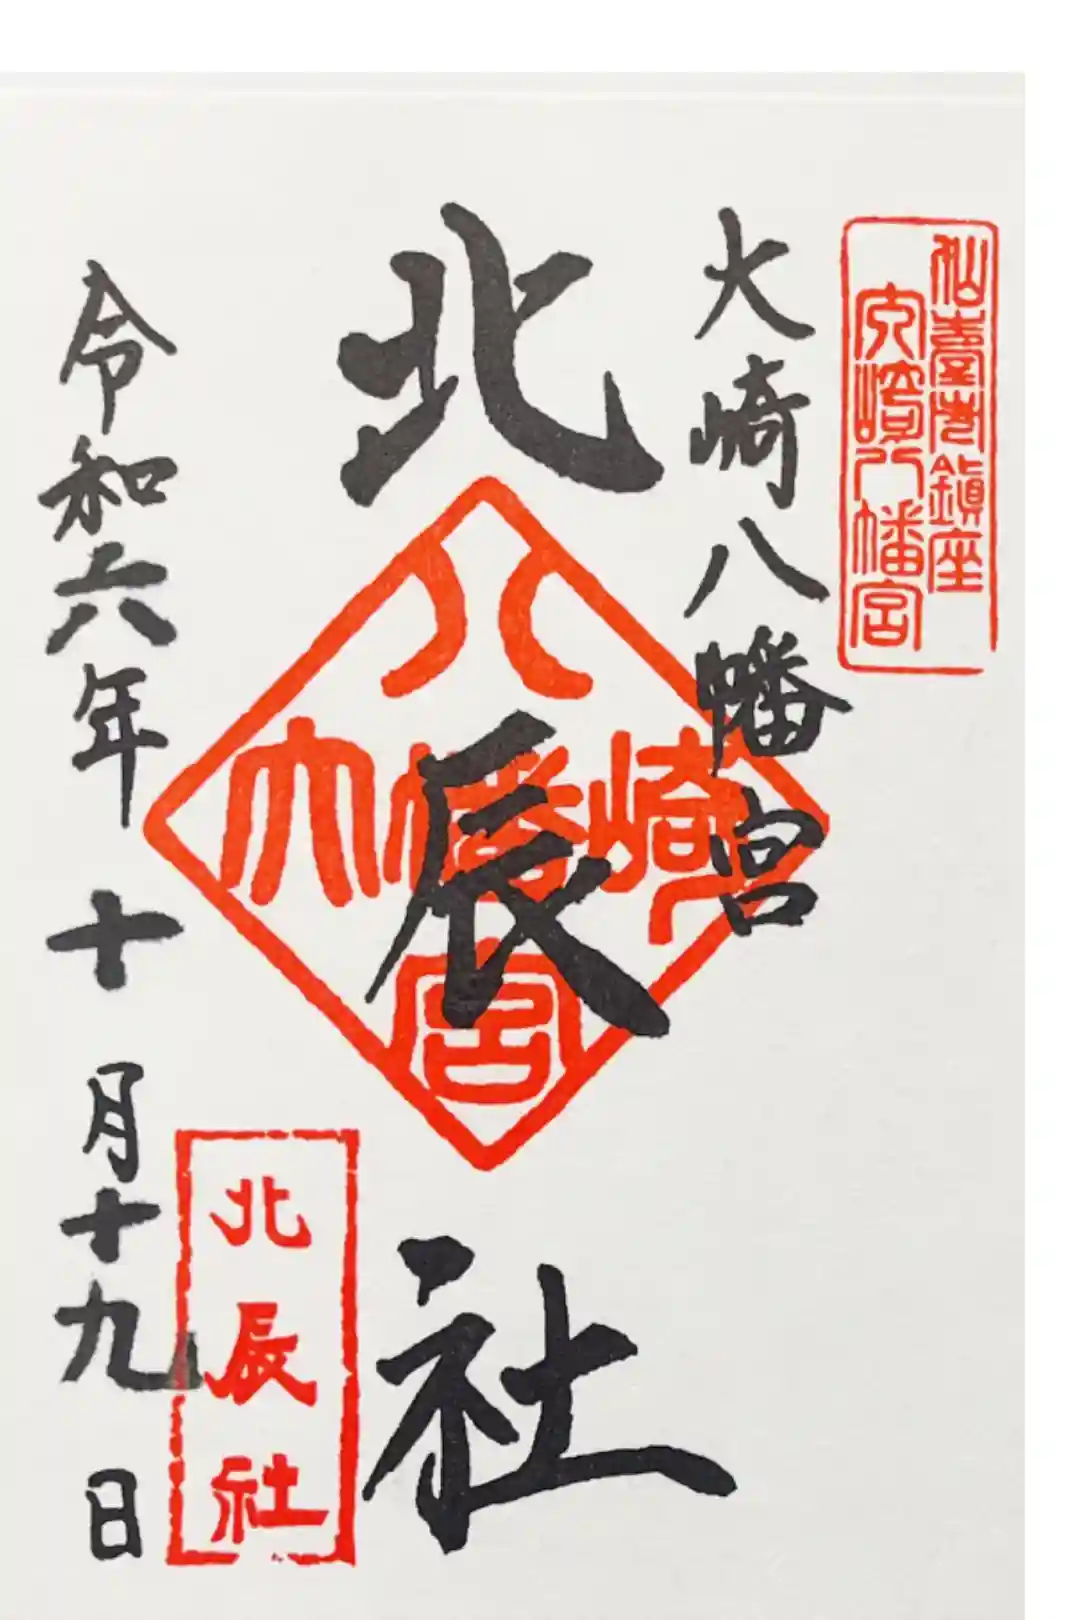 仙臺市鎮座
大崎八幡宮
大崎八幡宮
北辰社
八
大幡崎
宮
北辰社
令和六年十月十九日